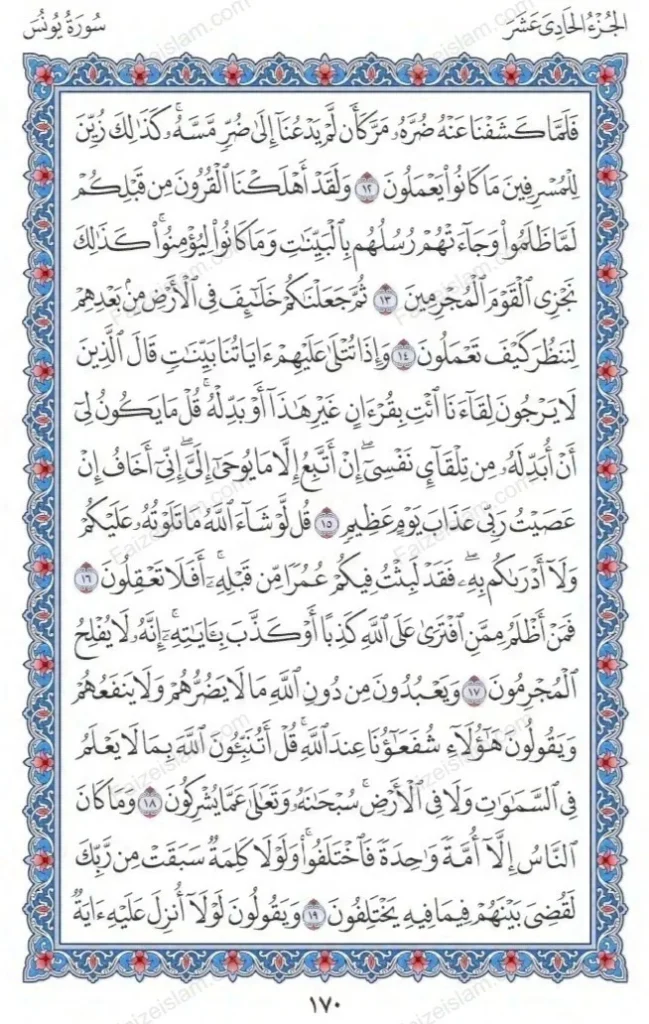 الجُزْءُ الحَادِى عَشَرَ
سُورَةُ يُونُسَ
فَلَمَّا كَشَفْنَا عَنْهُ ضُرَّهُۥ مَرَّ كَأَن لَّمْ يَدْعُنَآ إِلَىٰ ضُرٍّ مَّسَّهُۥ ۚ كَذَٰلِكَ زُيِّنَ
لِلْمُسْرِفِينَ مَا كَانُوا۟ يَعْمَلُونَ ١٢ وَلَقَدْ أَهْلَكْنَا ٱلْقُرُونَ مِن قَبْلِكُمْ
لَمَّا ظَلَمُوا۟ وَجَآءَتْهُمْ رُسُلُهُم بِٱلْبَيِّنَٰتِ وَمَا كَانُوا۟ لِيُؤْمِنُوا۟ ۚ كَذَٰلِكَ
نَجْزِى ٱلْقَوْمَ ٱلْمُجْرِمِينَ ١٣ ثُمَّ جَعَلْنَٰكُمْ خَلَٰٓئِفَ فِى ٱلْأَرْضِ مِنۢ بَعْدِهِمْ
لِنَنظُرَ كَيْفَ تَعْمَلُونَ ١٤ وَإِذَا تُتْلَىٰ عَلَيْهِمْ ءَايَاتُنَا بَيِّنَٰتٍ قَالَ ٱلَّذِينَ
لَا يَرْجُونَ لِقَآءَنَا ٱئْتِ بِقُرْءَانٍ غَيْرِ هَٰذَآ أَوْ بَدِّلْهُ ۚ قُلْ مَا يَكُونُ لِىٓ
أَنْ أُبَدِّلَهُۥ مِن تِلْقَآئِ نَفْسِىٓ ۖ إِنْ أَتَّبِعُ إِلَّا مَا يُوحَىٰٓ إِلَىَّ ۖ إِنِّىٓ أَخَافُ إِنْ
عَصَيْتُ رَبِّى عَذَابَ يَوْمٍ عَظِيمٍ ١٥ قُل لَّوْ شَآءَ ٱللَّهُ مَا تَلَوْتُهُۥ عَلَيْكُمْ
وَلَآ أَدْرَىٰكُم بِهِۦ ۖ فَقَدْ لَبِثْتُ فِيكُمْ عُمُرًا مِّن قَبْلِهِۦٓ ۚ أَفَلَا تَعْقِلُونَ ١٦
فَمَنْ أَظْلَمُ مِمَّنِ ٱفْتَرَىٰ عَلَى ٱللَّهِ كَذِبًا أَوْ كَذَّبَ بِـَٔايَٰتِهِۦٓ ۚ إِنَّهُۥ لَا يُفْلِحُ
ٱلْمُجْرِمُونَ ١٧ وَيَعْبُدُونَ مِن دُونِ ٱللَّهِ مَا لَا يَضُرُّهُمْ وَلَا يَنفَعُهُمْ
وَيَقُولُونَ هَٰٓؤُلَآءِ شُفَعَٰٓؤُنَا عِندَ ٱللَّهِ ۚ قُلْ أَتُنَبِّـُٔونَ ٱللَّهَ بِمَا لَا يَعْلَمُ
فِى ٱلسَّمَٰوَٰتِ وَلَا فِى ٱلْأَرْضِ ۚ سُبْحَٰنَهُۥ وَتَعَٰلَىٰ عَمَّا يُشْرِكُونَ ١٨ وَمَا كَانَ
ٱلنَّاسُ إِلَّآ أُمَّةً وَٰحِدَةً فَٱخْتَلَفُوا۟ ۚ وَلَوْلَا كَلِمَةٌ سَبَقَتْ مِن رَّبِّكَ
لَقُضِىَ بَيْنَهُمْ فِيمَا فِيهِ يَخْتَلِفُونَ ١٩ وَيَقُولُونَ لَوْلَآ أُنزِلَ عَلَيْهِ ءَايَةٌ
١٧٠
Faizeislam.com